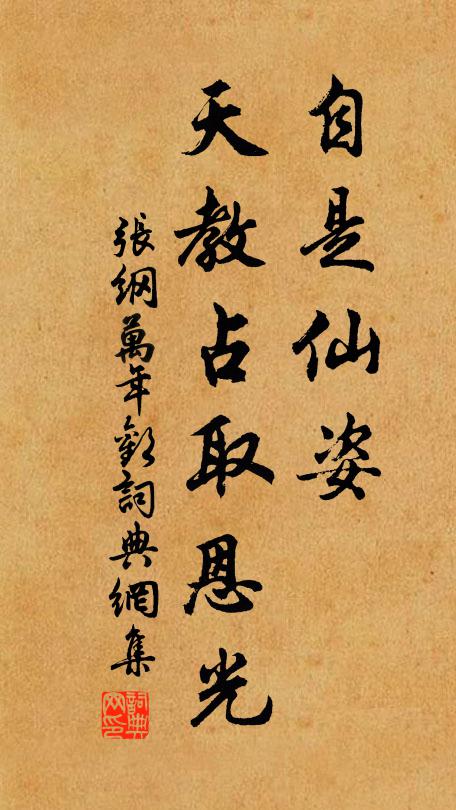 自是仙姿
天教占取恩光
張綱萬年歡詞典網集
詞典網印